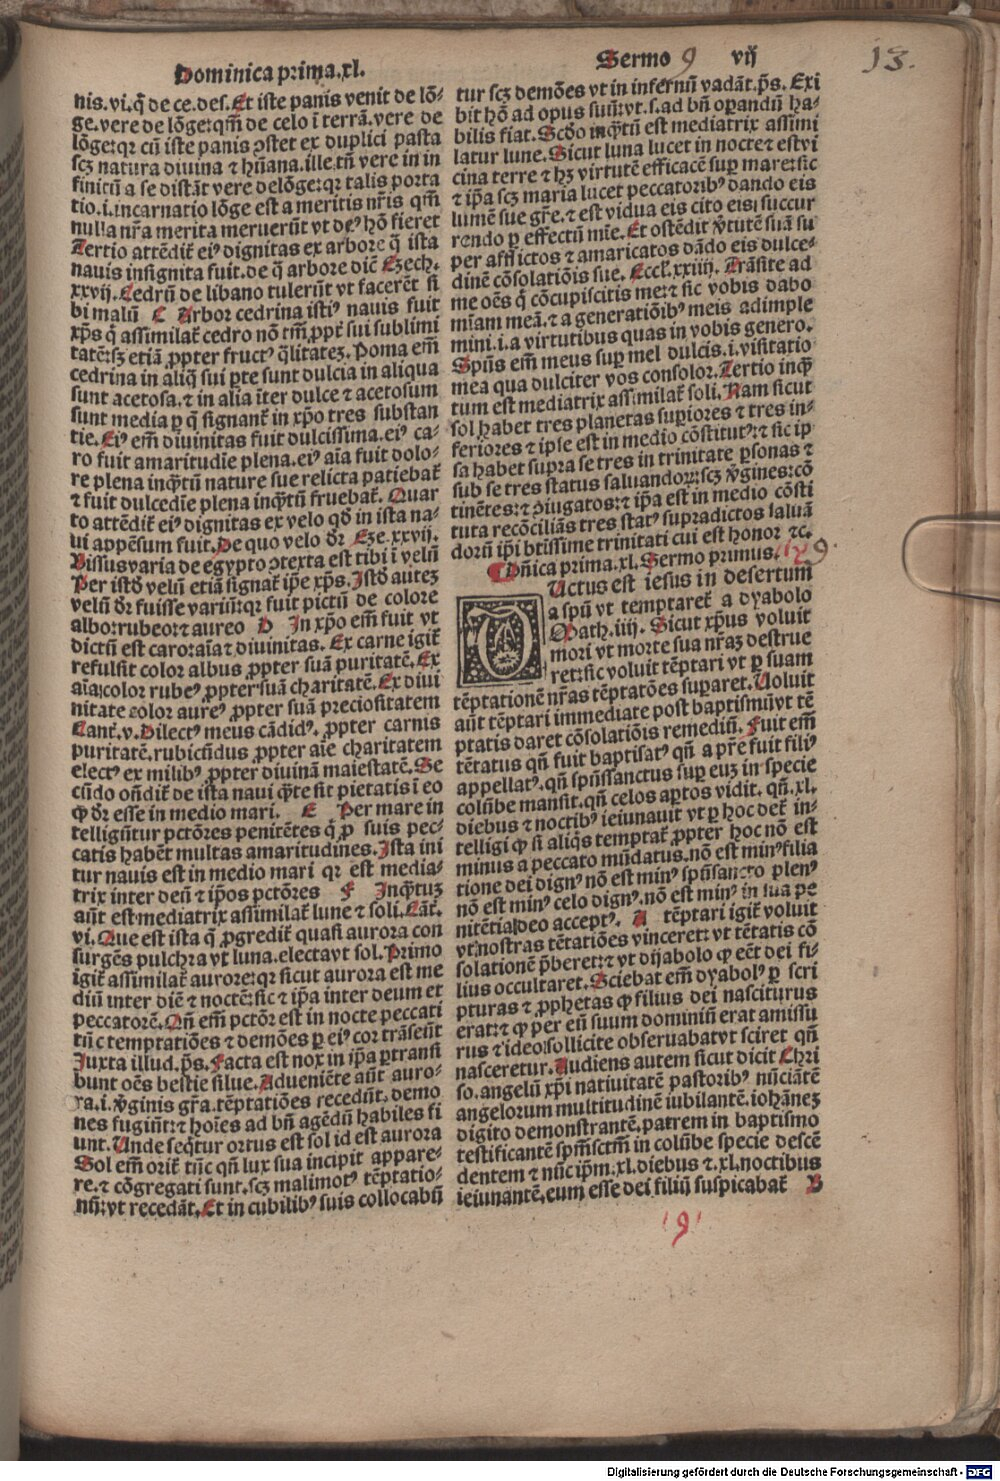 Dominica prima.xl.
Sermo 9 vij
13.
nis.vi.q̃ de ce.des.Et iste panis venit de lõ-
ge.vere de lõge:qm̃ de celo ĩ terrã.vere de
lõge:qꝛ cũ iste panis ꝯstet ex duplici pasta
scꝫ natura diuina ⁊ hũana.ille.tñ vere in in
finitũ a se distãt vere delõge:qꝛ talis porta
tio.i.incarnatio lõge est a meritis nr̃is qm̃
nulla nr̃a merita meruerũt vt deꝰ hõ fieret
Tertio attẽdit̃ eiꝰ dignitas ex arbore q̃ ista
nauis insignita fuit.de q̃ arbore dic̃ Ezech.
xxvij.Cedrũ de libano tulerũt vt facerẽt si
bi malũ C Arbor cedrina istiꝰ nauis fuit
xp̃s q̃ assimilat̃ cedro nõ tm̃ ꝓpt̃ sui sublimi
tatẽ:sꝫ etiã ꝓpter fructꝰ q̃litateꝫ.Poma em̃
cedrina in aliq̃ sui ꝑte sunt dulcia in aliqua
sunt acetosa.⁊ in alia ĩter dulce ⁊ acetosum
sunt media ꝑ q̃ signant̃ in xp̃o tres substan
tie.Eiꝰ em̃ diuinitas fuit dulcissima.eiꝰ ca-
ro fuit amaritudĩe plena.eiꝰ aĩa fuit dolo-
re plena inq̃tũ nature sue relicta patiebat̃
⁊ fuit dulcedĩe plena inq̃tũ fruebat̃. Quar
to attẽdit̃ eiꝰ dignitas ex velo qđ in ista na-
ui appẽsum fuit.De quo velo dr̃ Eze.xxvij.
Bissus varia de egypto ꝯtexta est tibi ĩ velũ
Per istđ velũ etiã signat̃ ip̃e xp̃s.Istđ auteꝫ
velũ dr̃ fuisse variũ:qꝛ fuit pictũ de colore
albo:rubeo:⁊ aureo D In xp̃o em̃ fuit vt
dictũ est caro:aĩa:⁊ diuinitas. Ex carne igit̃
refulsit color albus ꝓpter suã puritatẽ.Ex
aĩa:color rubeꝰ ꝓpter suã charitatẽ.Ex diui
nitate color aureꝰ ꝓpter suã preciositatem
Cant̃.v.Dilectꝰ meus cãdidꝰ. ꝓpter carnis
puritatẽ.rubicũdus ꝓpter aĩe charitatem
electꝰ ex milibꝰ ꝓpter diuinã maiestatẽ.Se
cũdo oñdit̃ de ista naui q̃te sit pietatis ĩ eo
ꝙ dr̃ esse in medio mari. E Per mare in
telligũtur pctõres penitẽtes q̃ ꝓ suis pec-
catis habẽt multas amaritudines.Ista ini
tur nauis est in medio mari qꝛ est media-
trix inter deũ ⁊ ip̃os pctõres F Inq̃tuꝫ
aũt est mediatrix assimilat̃ lune ⁊ soli.Cãt̃.
vi.Que est ista q̃ ꝓgredit̃ quasi aurora con
surgẽs pulchra vt luna.electa vt sol.Primo
igit̃ assimilat̃ aurore:qꝛ sicut aurora est me
diũ inter diẽ ⁊ noctẽ:sic ⁊ ip̃a inter deum et
peccatorẽ.Qñ em̃ pctõr est in nocte peccati
tũc temptatiões ⁊ demões ꝑ eiꝰ cor trãseũt
Juxta illud.p̃s.Facta est nox in ip̃a ꝑtransi
bunt oẽs bestie silue.Adueniẽte aũt auro-
ra.i.ꝟginis gr̃a.tẽptatiões recedũt.demo
nes fugiũt:⁊ hoĩes ad bñ agẽdũ habiles fi
unt.Unde seq̃tur ortus est sol id est aurora
Sol em̃ orit̃ tũc qñ lux sua incipit appare-
re.⁊ cõgregati sunt.scꝫ mali motꝰ tẽptatio-
nũ:vt recedãt.Et in cubilibꝰ suis collocabũ
tur scꝫ demões vt in infernũ vadãt.p̃s. Exi
bit hõ ad opus suũ:vt.s.ad bñ oꝑandũ ha-
bilis fiat. Scđo inq̃tũ est mediatrix assimi
latur lune.Sicut luna lucet in nocte ⁊ est vi
cina terre ⁊ hꝫ virtutẽ efficacẽ suꝑ mare:sic
⁊ ip̃a scꝫ maria lucet peccatoribꝰ dando eis
lumẽ sue gr̃e.⁊ est vidua eis cito eis: succur
rendo ꝑ effectũ mĩe.Et ostẽdit ꝟtutẽ suã su
per afflictos ⁊ amaricatos dãdo eis dulce-
dinẽ cõsolatiõis sue. Eccl̃.xxiiij. Trãsite ad
me oẽs q̃ cõcupiscitis me:⁊ sic vobis dabo
mĩam meã.⁊ a generatiõibꝰ meis adimple
mini.i.a virtutibus quas in vobis genero.
Spũs em̃ meus suꝑ mel dulcis.i.visitatio
mea qua dulciter vos consolor.Tertio inq̃
tum est mediatrix assimilat̃ soli.Nam sicut
sol habet tres planetas suꝑiores ⁊ tres in-
feriores ⁊ ipse est in medio cõstitutꝰ:⁊ sic ip
sa habet supra se tres in trinitate ꝑsonas ⁊
sub se tres status saluandoꝝ:scꝫ ꝟgines:cõ
tinẽtes:⁊ ꝯiugatos:⁊ ip̃a est in medio cõsti
tuta recõciliãs tres statꝰ supradictos saluã
dorũ ip̃i btĩssime trinitati cui est honor ⁊c.
Dñica prima.xl.Sermo primus. 9.
Uctus est iesus in desertum
a spũ vt temptaret̃ a dyabolo
Math.iiij. Sicut xp̃us voluit
mori vt morte sua nr̃aꝫ destrue
ret:sic voluit tẽptari vt ꝑ suam
tẽptationẽ nr̃as tẽptatões suꝑaret.Uoluit
aũt tẽptari immediate post baptismũ:vt tẽ
ptatis daret cõsolatiõis remediũ. Fuit em̃
tẽtatus qñ fuit baptisatꝰ qñ a pr̃e fuit filiꝰ
appellatꝰ.qñ spũssanctus suꝑ euꝫ in specie
colũbe mansit.qñ celos aꝑtos vidit. qñ.xl.
diebus ⁊ noctibꝰ ieiunauit vt ꝑ hoc det̃ in-
telligi ꝙ si aliq̃s temptat̃ ꝓpter hoc nõ est
minus a peccato mũdatus.nõ est minꝰ filia
tione dei dignꝰ nõ est minꝰ spũsancto plenꝰ
nõ est minꝰ celo dignꝰ.nõ est minꝰ in sua pe
nitẽtia deo acceptꝰ. A tẽptari igit̃ voluit
vt nostras tẽtatiões vinceret: vt tẽtatis cõ
solationẽ p̃beret:⁊ vt dijabolo ꝙ eẽt dei fi-
lius occultaret. Sciebat em̃ dyabolꝰ ꝑ scri
pturas ⁊ ꝓphetas ꝙ filius dei nasciturus
erat:⁊ ꝙ per eũ suum dominiũ erat amissu
rus ⁊ ideo sollicite obseruabat vt sciret qñ
nasceretur. Audiens autem sicut dicit Chri
so.angelũ xp̃i natiuitatẽ pastoribꝰ nũciãtẽ
angelorum multitudinẽ iubilantẽ.iohãneꝫ
digito demonstrantẽ.patrem in baptismo
testificantẽ spm̃sctm̃ in colũbe specie descẽ
dentem ⁊ nũc ip̃m.xl.diebus ⁊.xl.noctibus
ieiunantẽ.eum esse dei filiũ suspicabat̃ B
9
Digitalisierung gefördert durch die Deutsche Forschungsgemeinschaft - DFG